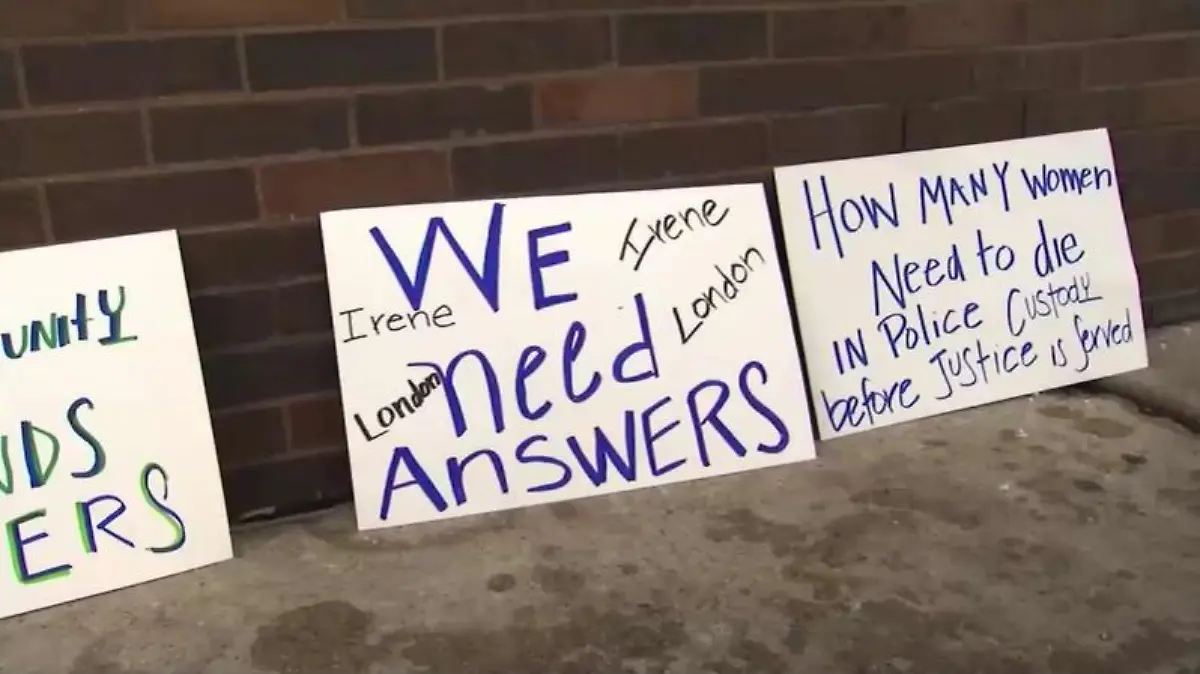 UNITY
NDS
ERS
WE
Irene
Irene
London
need
London
ANSWERS
HOW MANY Women
Need to die
IN Police Custody
before Justice is Served